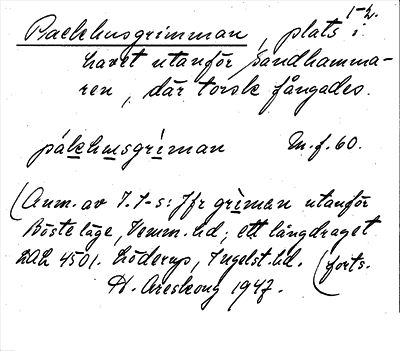 1-2.
Packhusgrimman, plats i
havet utanför Sandhamma-
ren, där torsk fångades.
pákhusgrìman M.f.60.
(Anm. av I.I-s: Jfr grìman utanför
Böste läge, Vemm. hd; ett långdraget
LAL 4501. Löderup, Ingelst. hd. (forts.
H. Areskoug 1947.